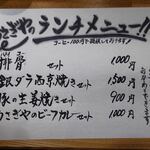 うさぎやのランチメニュー!!
コーヒー100円で提供しております!
排骨セット 1000円
銀ダラ西京焼きセット 1500円
豚の生姜焼きセット 900円
うさぎやのビーフカレーセット 1000円